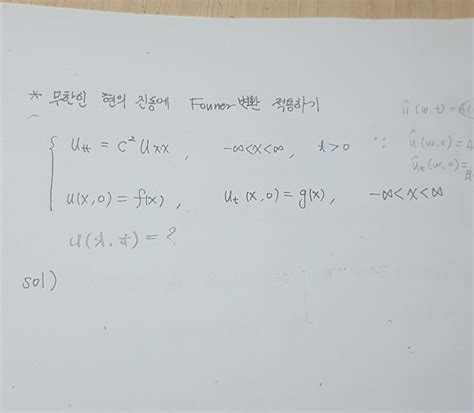 * 무한인 현의 진동에 Fourier 변환 적용하기
u_tt = c² u_xx , -∞<x<∞ , t>0 ∵
u(x,0)=f(x) , u_t(x,0)=g(x) , -∞<x<∞
u(x,t)=?
sol)
û(w,t)=
û(w,0)=A
û_t(w,0)=